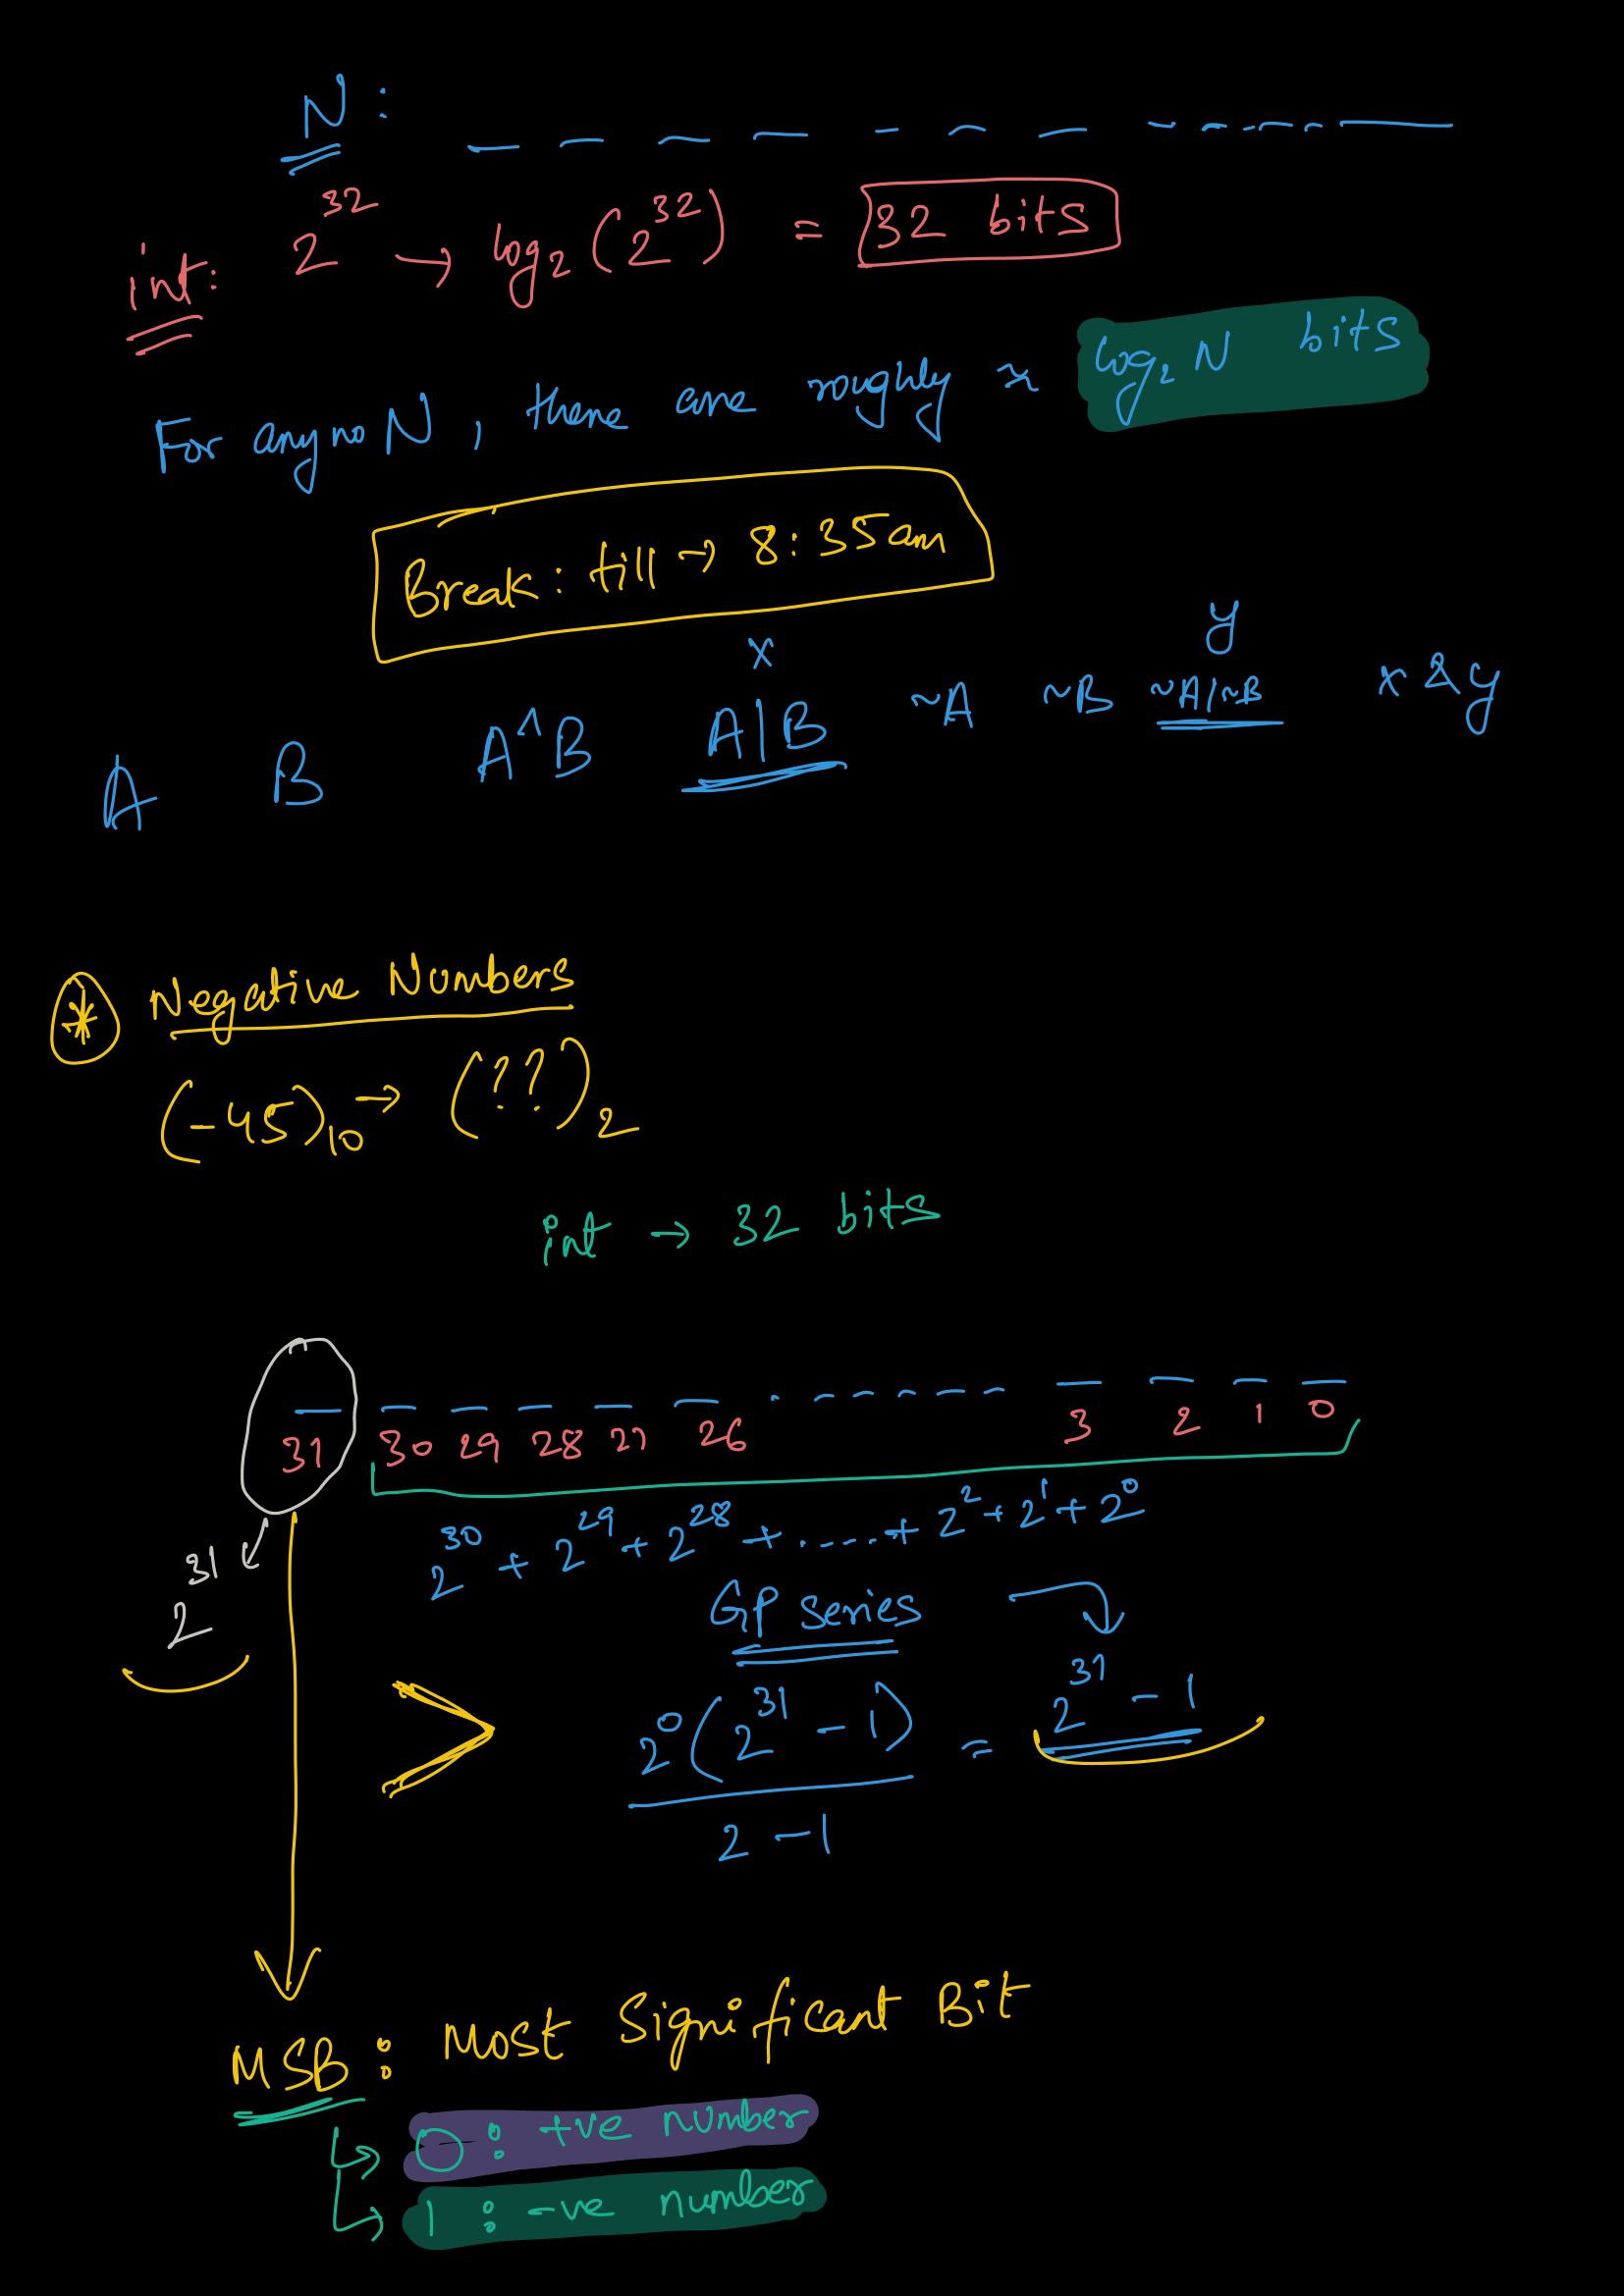 N:
int: 2^32 → log₂(2^32) = 32 bits
For any no N, there are roughly ≈ log₂N bits
Break: till → 8:35am
x y
A B A^B A|B ~A ~B ~A|~B x & y
* Negative Numbers
(-45)₁₀ → (??)₂
int → 32 bits
31 30 29 28 27 26 3 2 1 0
2^31 2^30 + 2^29 + 2^28 + ..... + 2^2 + 2^1 + 2^0
GP series
> 2^0(2^31 - 1) / 2 - 1 = 2^31 - 1
MSB: Most Significant Bit
↳ 0: +ve number
↳ 1: -ve number